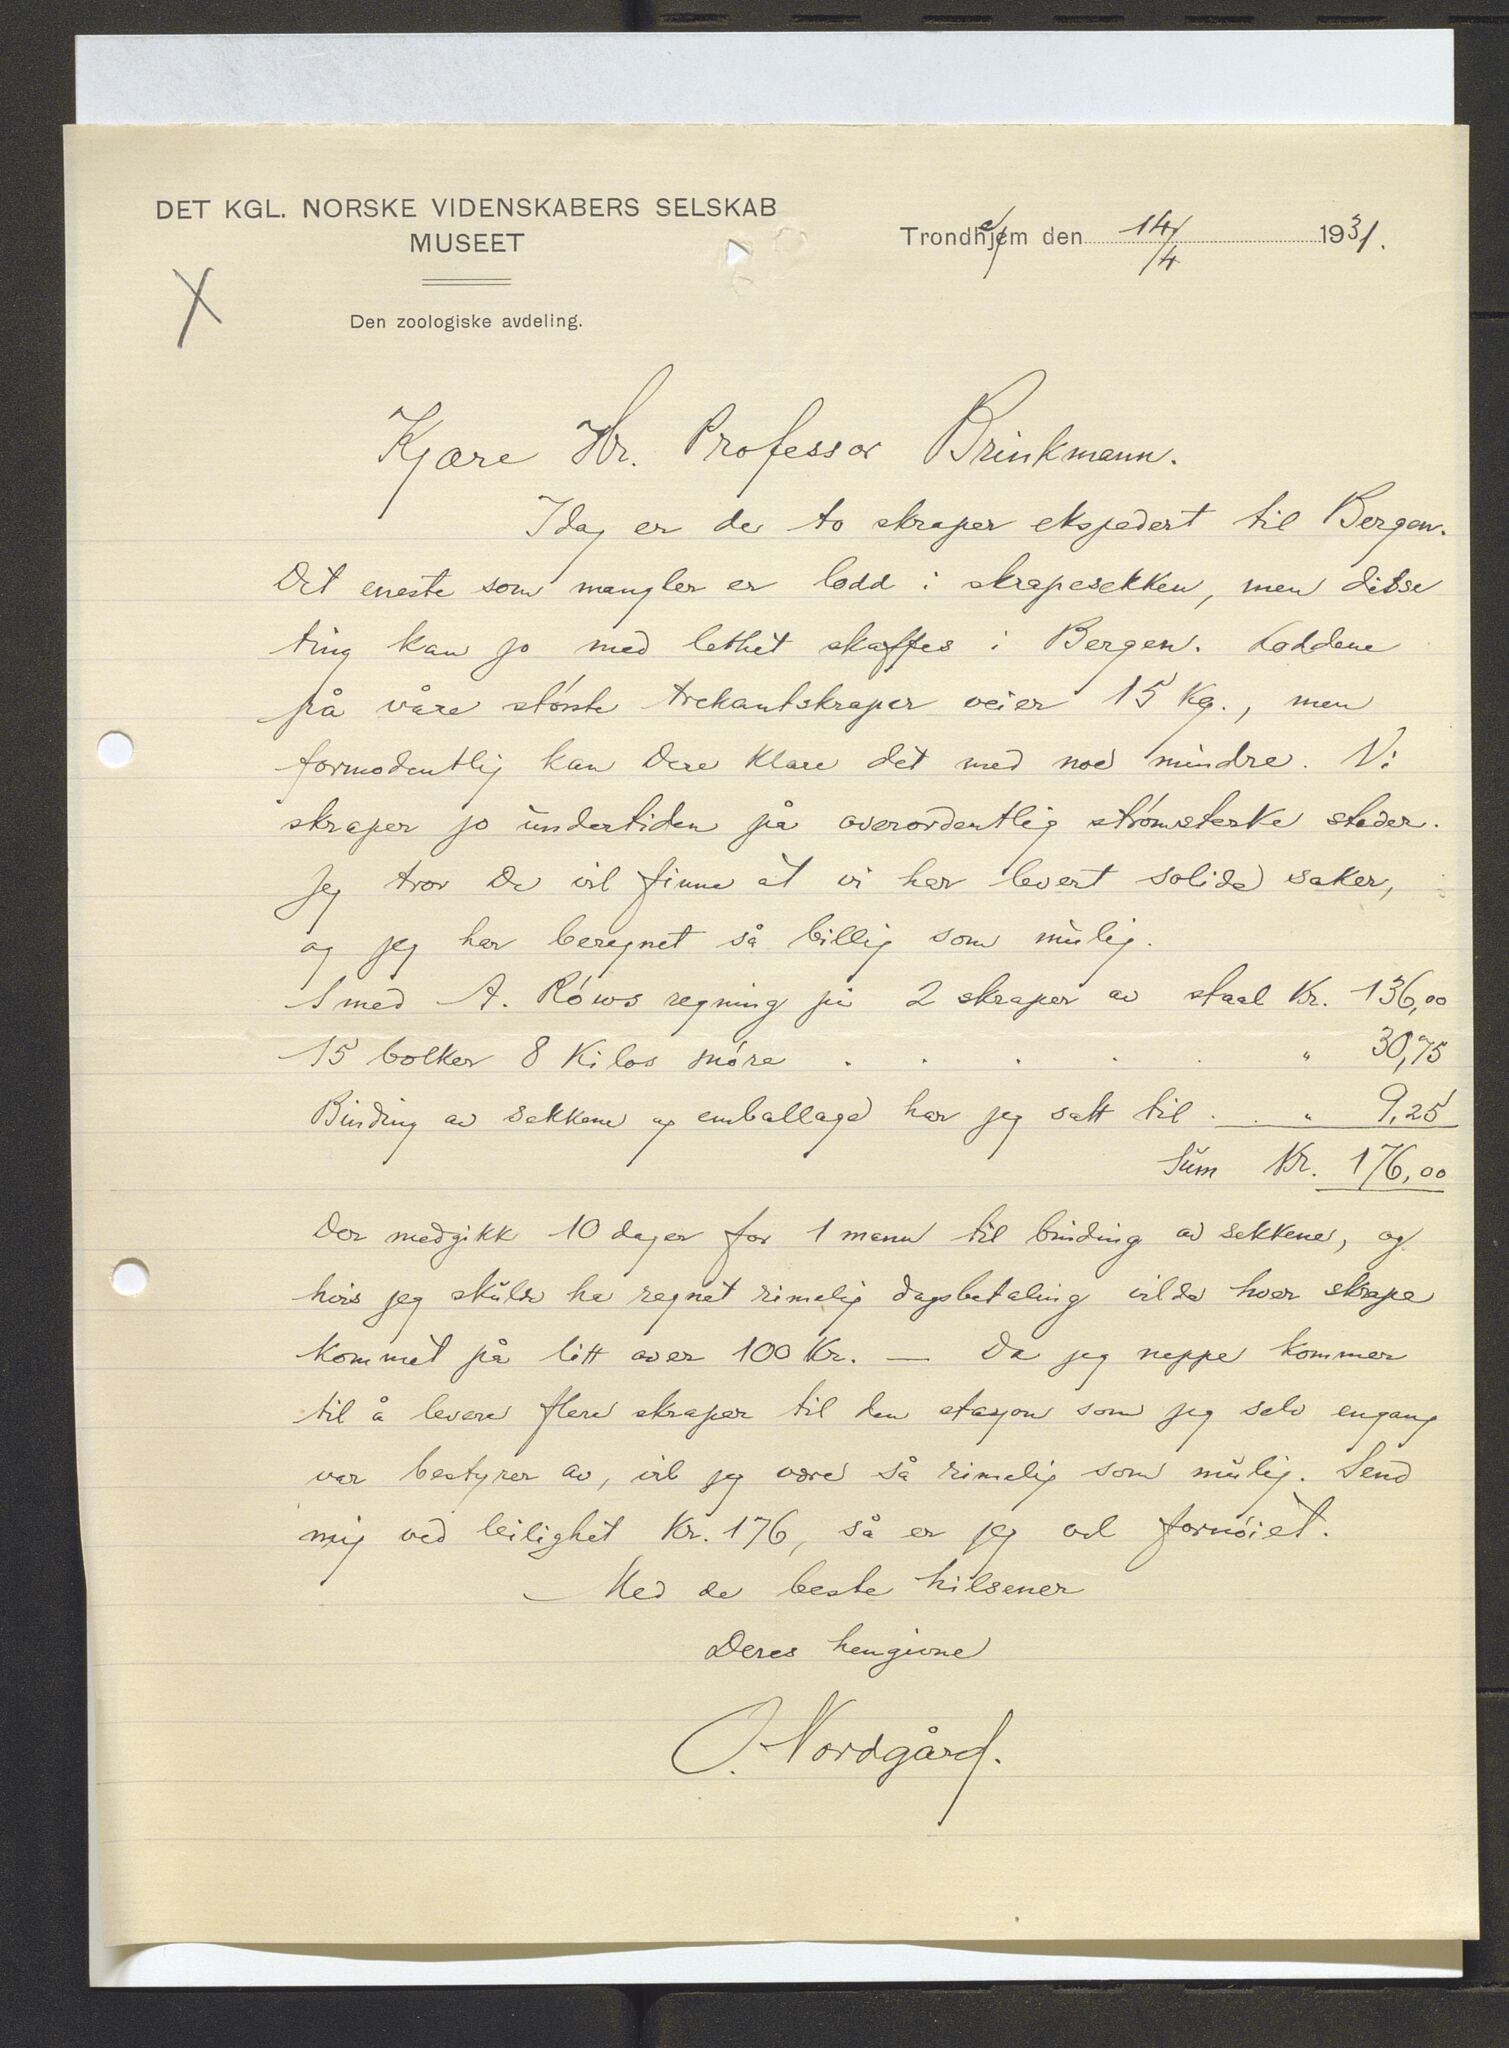 DET KGL. NORSKE VIDENSKABERS SELSKAB
MUSEET
Den zoologiske avdeling.
Trondhjem den 14/4 1931.
X
Kjære Hr. Professor Brinkmann.
Idag er de to skraper ekspedert til Bergen.
Det eneste som mangler er lodd i skrapesekken, men disse
ting kan jo med lethet skaffes i Bergen. Loddene
på våre største trekantskraper veier 15 Kg., men
formodentlig kan Dere klare det med noe mindre. Vi
skraper jo undertiden på overordentlig strømsterke steder.
Jeg tror De vil finne at vi har levert solide saker,
og jeg har beregnet så billig som mulig.
Smed A. Røws regning på 2 skraper av staal Kr. 136,00
15 bolker 8 Kilos snøre . . . . . " 30,75
Binding av sekkene og emballage har jeg satt til . . " 9,25
Sum Kr. 176,00
Der medgikk 10 dager for 1 mann til binding av sekkene, og
hvis jeg skulde ha regnet rimelig dagsbetaling vilde hver skrape
kommet på litt over 100 Kr. — Da jeg neppe kommer
til å levere flere skraper til den stasjon som jeg selv engang
var bestyrer av, vil jeg være så rimelig som mulig. Send
mig ved leilighet Kr. 176, så er jeg vel fornøiet.
Med de beste hilsener
Deres hengivne
O. Nordgård.